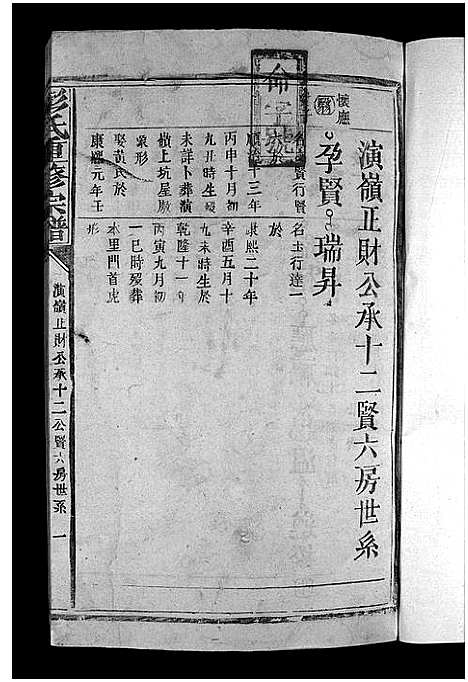 演嶺正財公承十二賢六房世系
懷應
孕賢 瑞昇
命字號
行賢
順治十三年
丙申十月初
九丑時生歿
未詳卜葬演
嶺上坑屋廠
象形
娶黃氏於
康熙元年壬
名士行達一
於
康熙二十年
辛酉五月十
九未時生於
乾隆十一年
丙寅九月初
一巳時歿葬
本里門首虎
形
彭氏重修宗譜
演嶺正財公承十二公賢六房世系 一